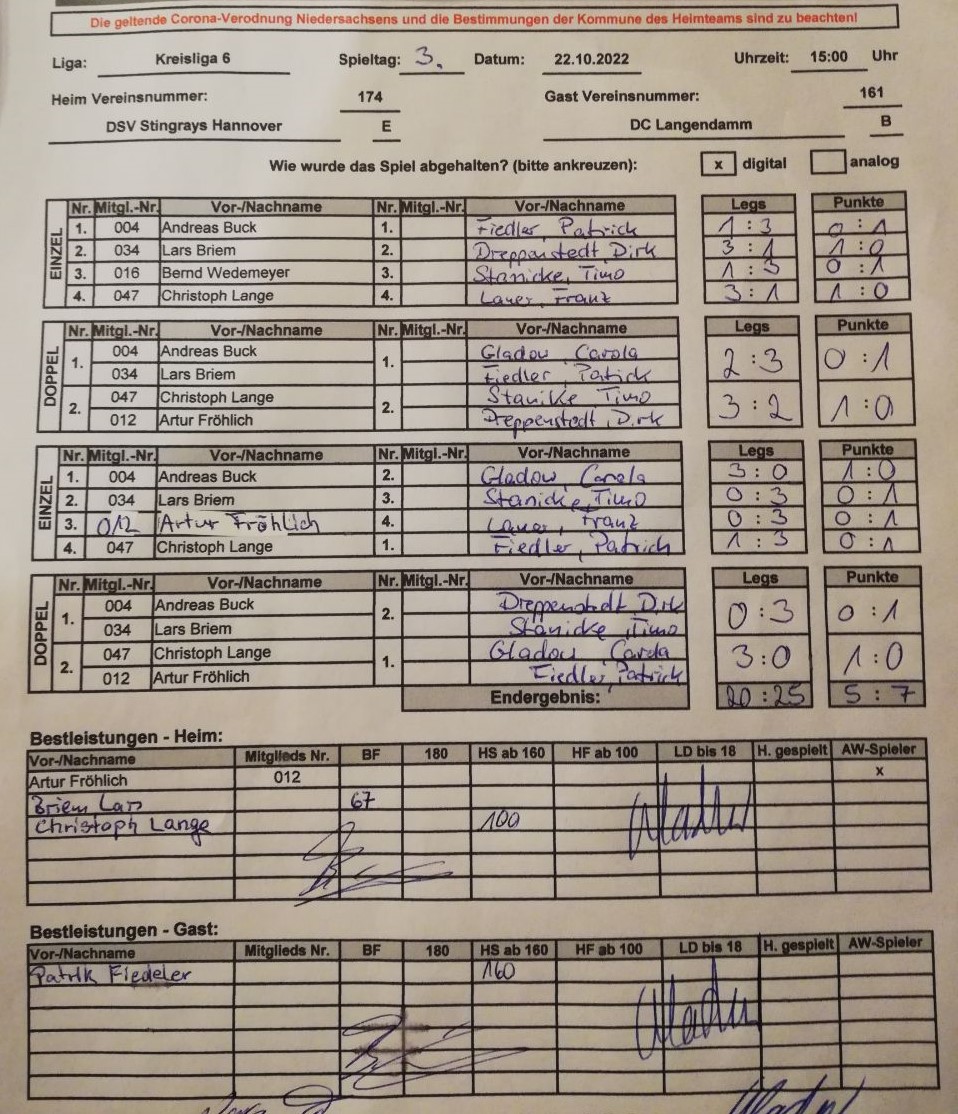 Die geltende Corona-Verodnung Niedersachsens und die Bestimmungen der Kommune des Heimteams sind zu beachten!
Liga: Kreisliga 6 Spieltag: 3. Datum: 22.10.2022 Uhrzeit: 15:00 Uhr
Heim Vereinsnummer: 174 Gast Vereinsnummer: 161
DSV Stingrays Hannover E DC Langendamm B
Wie wurde das Spiel abgehalten? (bitte ankreuzen): x digital analog
EINZEL
Nr. Mitgl.-Nr. Vor-/Nachname Nr. Mitgl.-Nr. Vor-/Nachname Legs Punkte
1. 004 Andreas Buck 1. Fiedler, Patrick 1 : 3 0 : 1
2. 034 Lars Briem 2. Dreppenstedt, Dirk 3 : 1 1 : 0
3. 016 Bernd Wedemeyer 3. Stanicke, Timo 1 : 3 0 : 1
4. 047 Christoph Lange 4. Lauer, Franz 3 : 1 1 : 0
DOPPEL
Nr. Mitgl.-Nr. Vor-/Nachname Nr. Mitgl.-Nr. Vor-/Nachname Legs Punkte
1. 004 Andreas Buck 1. Gladow, Carola 2 : 3 0 : 1
034 Lars Briem Fiedler, Patick
2. 047 Christoph Lange 2. Stanike Timo 3 : 2 1 : 0
012 Artur Fröhlich Dreppenstedt, Dirk
EINZEL
Nr. Mitgl.-Nr. Vor-/Nachname Nr. Mitgl.-Nr. Vor-/Nachname Legs Punkte
1. 004 Andreas Buck 2. Gladow, Carola 3 : 0 1 : 0
2. 034 Lars Briem 3. Stanicke, Timo 0 : 3 0 : 1
3. 012 Artur Fröhlich 4. Lauer, Franz 0 : 3 0 : 1
4. 047 Christoph Lange 1. Fiedler, Patrich 1 : 3 0 : 1
DOPPEL
Nr. Mitgl.-Nr. Vor-/Nachname Nr. Mitgl.-Nr. Vor-/Nachname Legs Punkte
1. 004 Andreas Buck 2. Dreppenstedt, Dirk 0 : 3 0 : 1
034 Lars Briem Stanicke, Timo
2. 047 Christoph Lange 1. Gladow, Carola 3 : 0 1 : 0
012 Artur Fröhlich Fiedler, Patrick
Endergebnis: 20 : 25 5 : 7
Bestleistungen - Heim:
Vor-/Nachname Mitglieds Nr. BF 180 HS ab 160 HF ab 100 LD bis 18 H. gespielt AW-Spieler
Artur Fröhlich 012 x
Briem Lars 67
Christoph Lange 100
Bestleistungen - Gast:
Vor-/Nachname Mitglieds Nr. BF 180 HS ab 160 HF ab 100 LD bis 18 H. gespielt AW-Spieler
Patrik Fiedeler 160